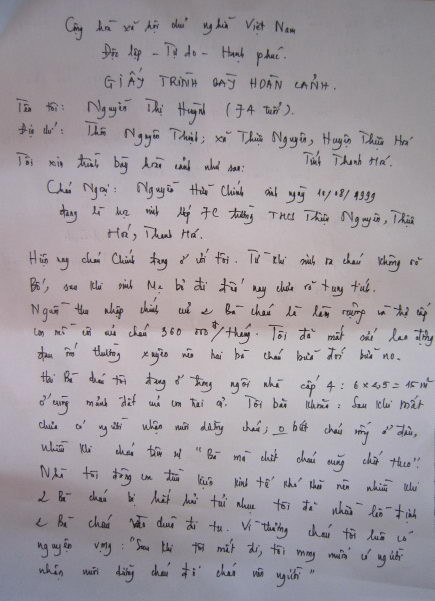 Cộng hoà xã hội chủ nghĩa Việt Nam
Độc lập - Tự do - Hạnh phúc.
GIẤY TRÌNH BÀY HOÀN CẢNH.
Tên tôi: Nguyễn Thị Huỳnh (74 tuổi).
Địa chỉ: Thôn Nguyên Thịnh; xã Thiệu Nguyên, Huyện Thiệu Hoá
Tỉnh Thanh Hoá.
Tôi xin trình bày hoàn cảnh như sau:
Cháu Ngoại: Nguyễn Hữu Chính sinh ngày 10/08/1999
đang là học sinh lớp 7C trường THCS Thiệu Nguyên, Thiệu
Hoá, Thanh Hoá.
Hiện nay cháu Chính đang ở với tôi. Từ khi sinh ra cháu không có
Bố, sau khi sinh Mẹ bỏ đi đến nay chưa rõ tung tích.
Nguồn thu nhập chính của 2 Bà cháu là làm ruộng và trợ cấp
của cháu 360 000đ/tháng. Tôi đã mất sức lao động
đau ốm thường xuyên nên hai bà cháu bữa đói bữa no.
Hai Bà cháu tôi đang ở trong ngôi nhà cấp 4: 6 x 2,5 = 15 m²
ở cùng mảnh đất của con trai cả. Tôi băn khoăn: Sau khi mất
chưa có người nhận nuôi dưỡng cháu; 0 biết cháu sống ở đâu,
nhiều khi cháu tâm sự "Bà mà chết cháu cũng chết theo".
Nhà tôi đông con đều kinh tế khó khăn nên nhiều khi
2 Bà cháu bị hắt hủi tủi nhục tôi đã nhiều lần định
2 Bà cháu đi tu. Vì thương cháu tôi luôn có
nguyện vọng: "Sau khi tôi mất đi, tôi mong muốn có người
nhận nuôi dưỡng cháu để cháu nên người"